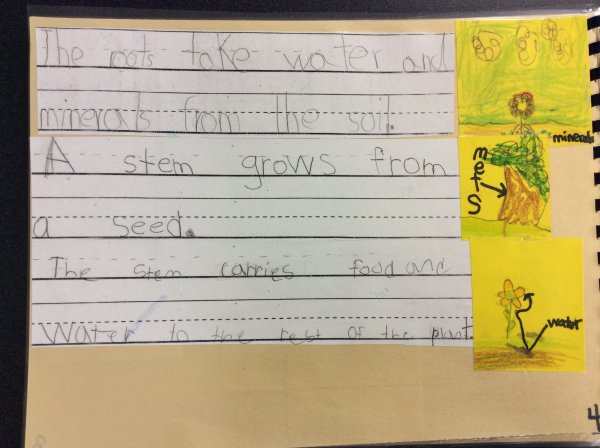 The roots take water and
minerals from the soil.
minerals
A stem grows from
a seed.
metS
The stem carries food and
Water to the rest of the plant
water
4